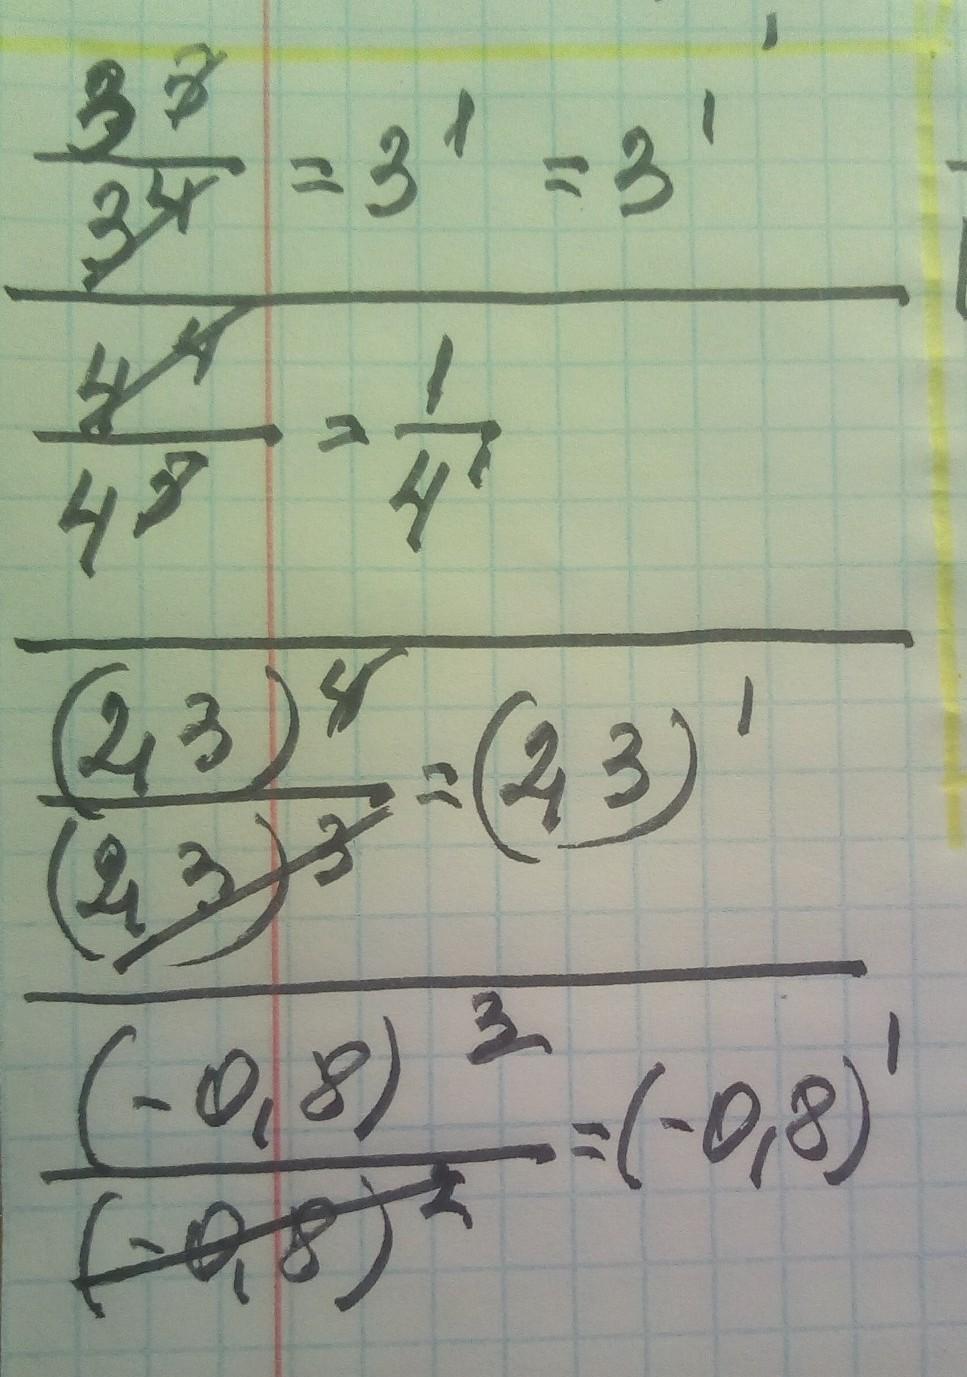 3 / 3 = 3¹ = 3¹
4 / 4 = 1 / 4¹
(2,3) / (2,3)³ = (2,3)¹
(-0,8)³ / (-0,8)² = (-0,8)¹